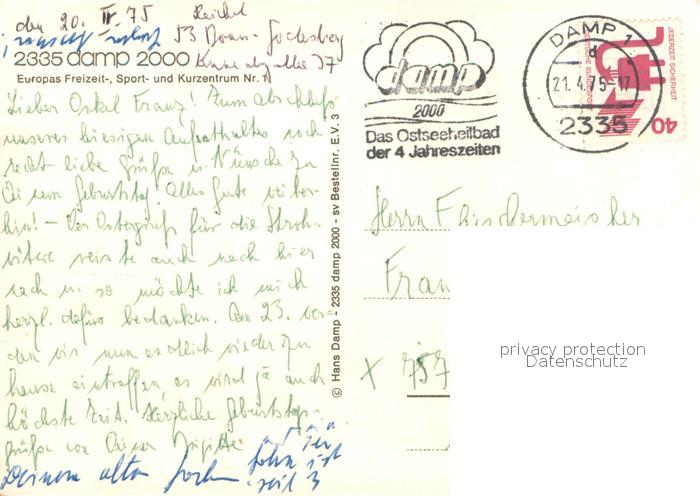 den 20. IV. 75 Reichel
53 Bonn-Godesberg
2335 damp 2000
Europas Freizeit-, Sport- und Kurzentrum Nr. 1
Lieber Onkel Franz! Zum Abschluß
unseres hiesigen Aufenthaltes noch
recht liebe Grüße u. Wünsche zu
Deinem Geburtstag. Alles Gute weiter-
hin! – Der Ostergruß für die Stroh-
witwe reiste auch noch hier
nach u. so möchte ich mich
herzl. dafür bedanken. Am 23. wer-
den wir nun endlich wieder zu
hause eintreffen, es wird ja auch
höchste Zeit. Herzliche Geburtstags-
grüße von Deiner Brigitte
Deinem alten
seit 3
© Hans Damp - 2335 damp 2000 - sv Bestellnr. E.V. 3
damp
2000
Das Ostseeheilbad
der 4 Jahreszeiten
DAMP 1
d
21.4.75-17
2335
JEDERZEIT SICHERHEIT
DEUTSCHE BUNDESPOST
40
Herrn Fleischermeister
Fran
X 757
privacy protection
Datenschutz